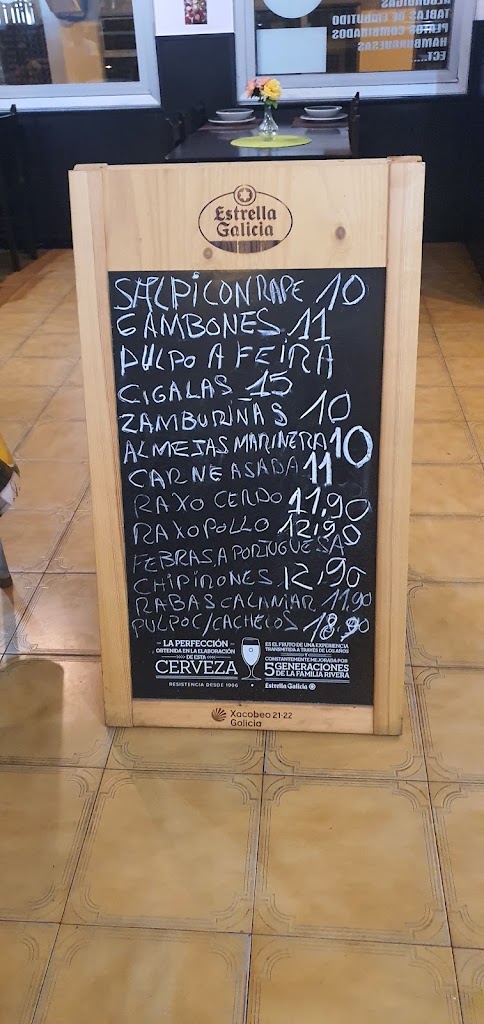 TABLAS DE EMBUTIDO
PLATOS COMBINADOS
HAMBURGUESAS
ECT......
Estrella
Galicia
SALPICON RAPE 10
GAMBONES 11
PULPO A FEIRA
CIGALAS 15
ZAMBURINAS 10
ALMEJAS MARINERA 10
CARNE ASADA 11
RAXO CERDO 11,90
RAXO POLLO 12,90
FEBRAS A PORTUGUESA
CHIPIRONES 12,90
RABAS CALAMAR 11,90
PULPO C/CACHELOS 18,90
LA PERFECCIÓN
OBTENIDA EN LA ELABORACIÓN
DE ESTA
CERVEZA
RESISTENCIA DESDE 1906
ES EL FRUTO DE UNA EXPERIENCIA
TRANSMITIDA A TRAVÉS DE LOS AÑOS
Y
CONSTANTEMENTE MEJORADA POR
5 GENERACIONES
DE LA FAMILIA RIVERA
Estrella Galicia
Xacobeo 21·22
Galicia